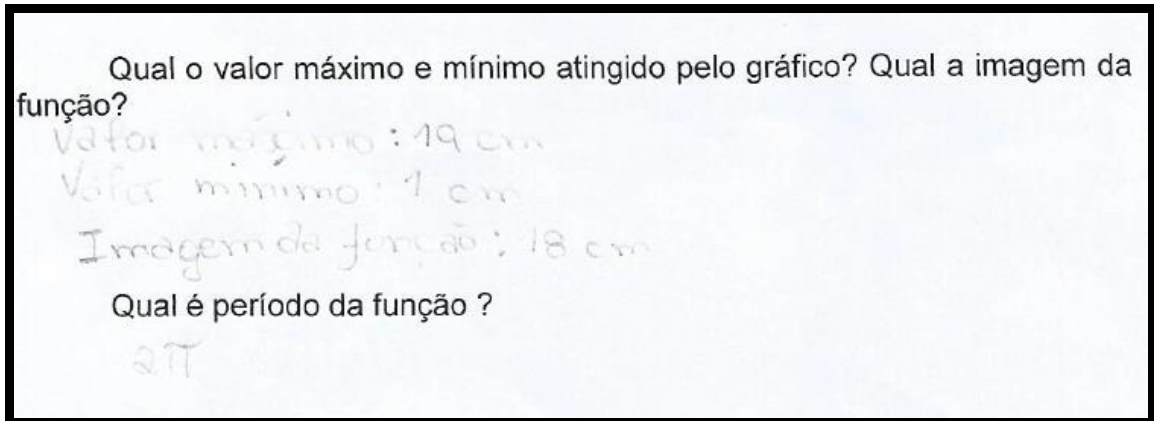 Qual o valor máximo e mínimo atingido pelo gráfico? Qual a imagem da
função?
Valor máximo : 19 cm
Valor mínimo : 1 cm
Imagem da função : 18 cm
Qual é período da função ?
2π